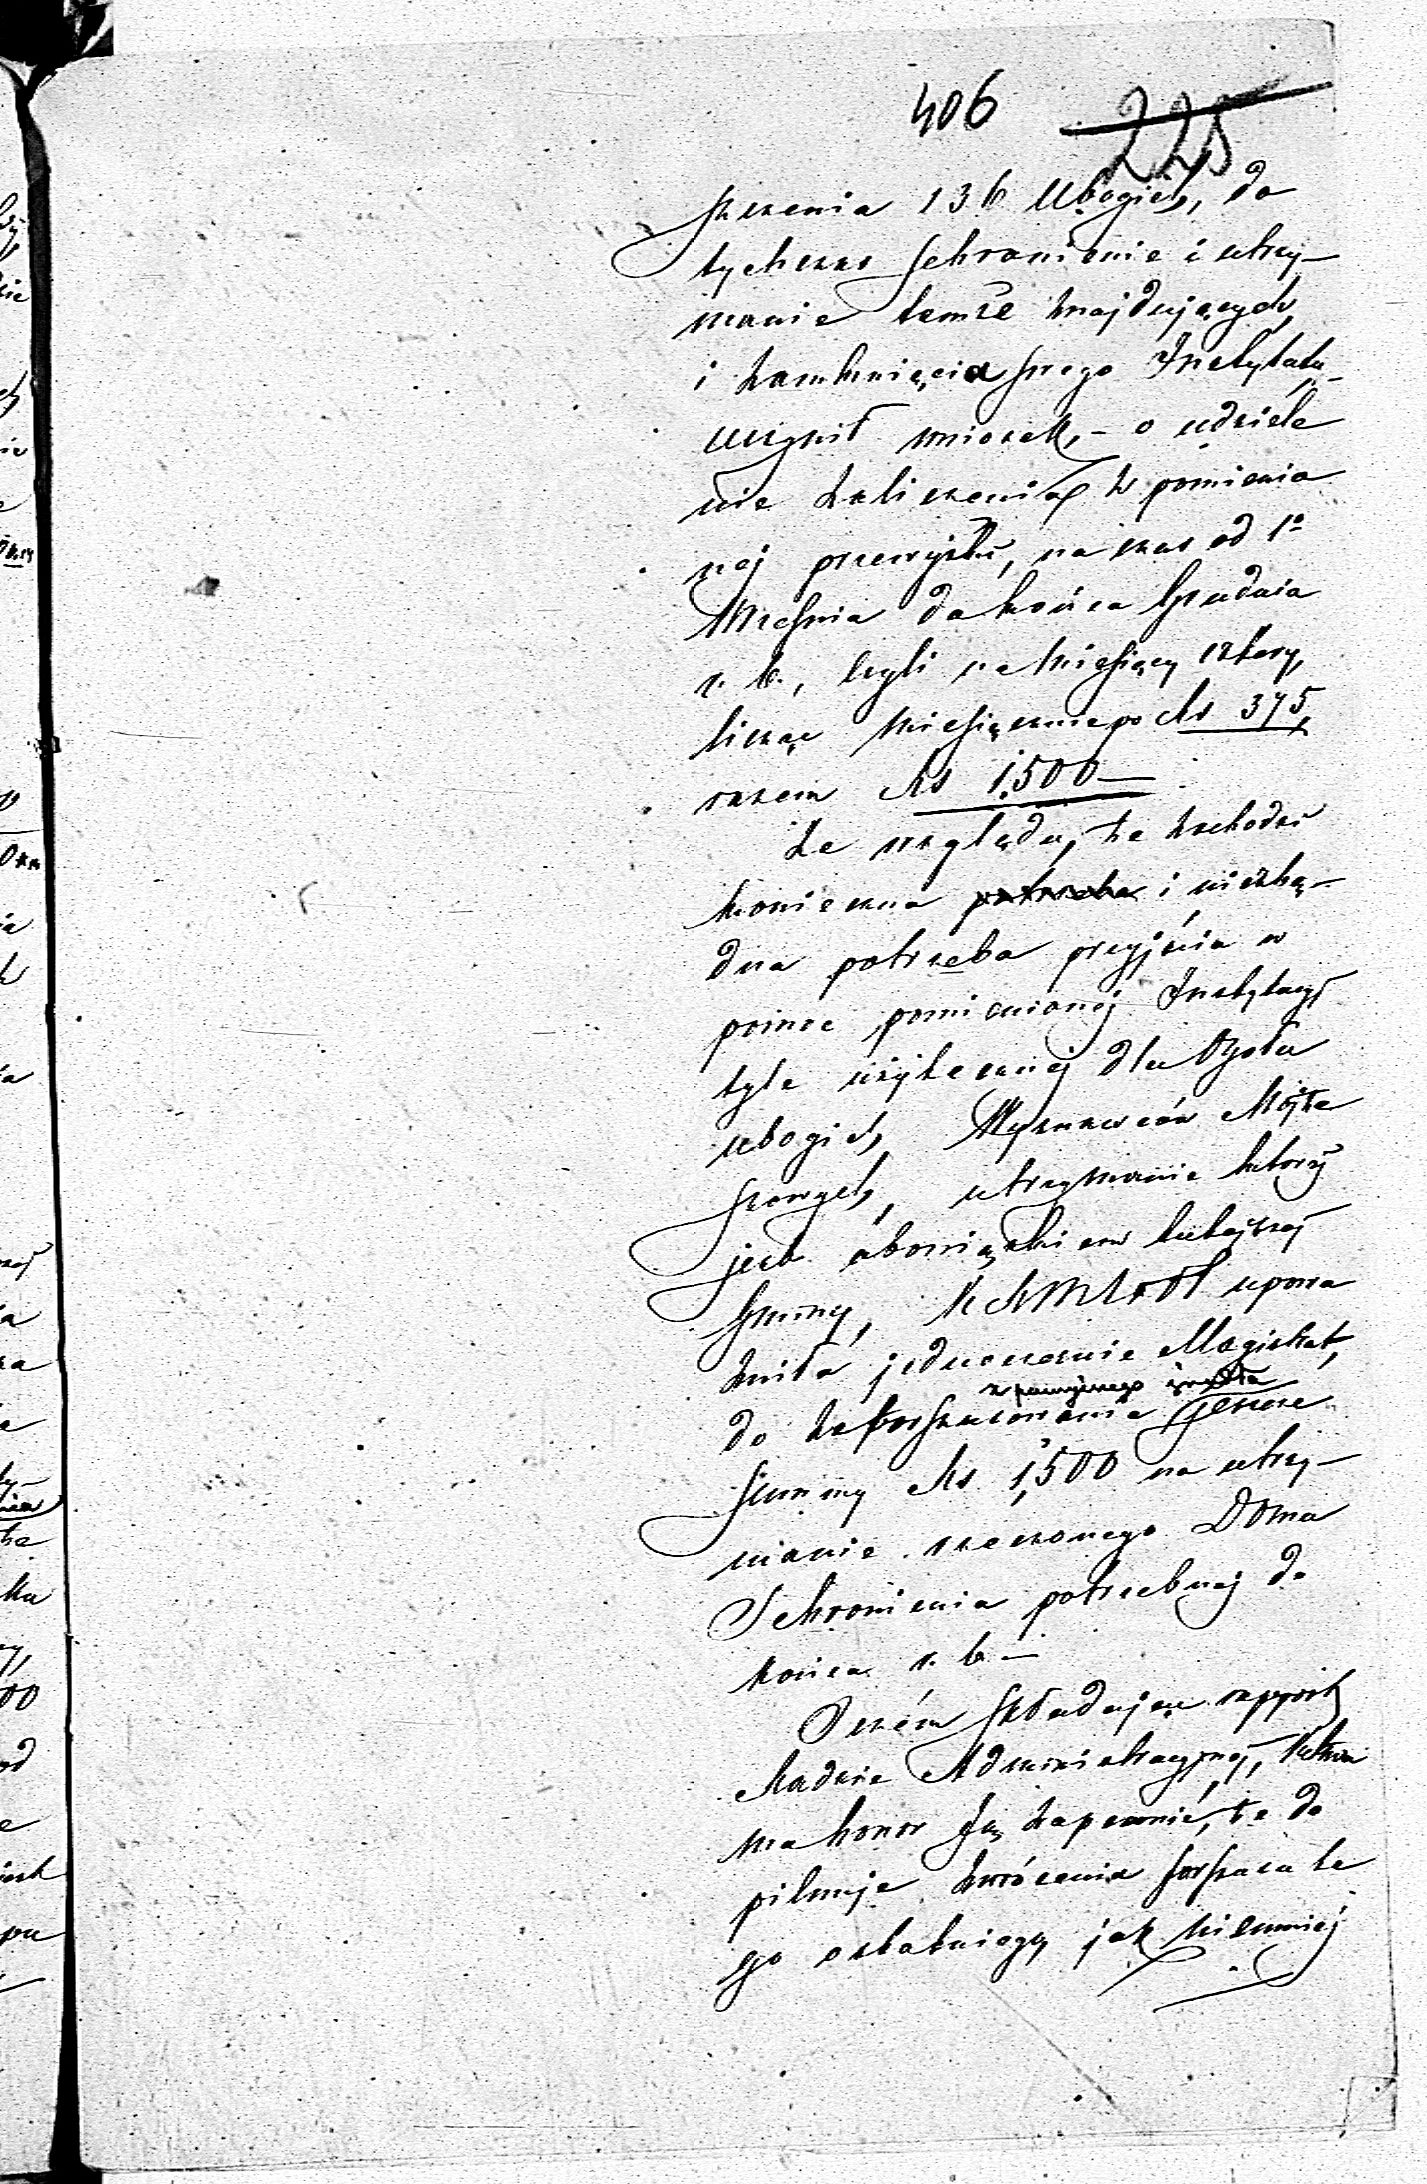 406 225
szczenia 136 Ubogich, do
tychczas schronienie i utrzy-
manie tamże znajdujących,
i zamknięcia swego Instytutu,-
uczynił wniosek, - o udziele
nie zaliczenia w pomienio
nej przewyżki, na czas od 1o
Września do końca Grudnia
r. b., czyli na Miesięcy cztery,
licząc Miesięcznie po Rs 375,
razem Rs 1,500 —
Ze względu, że zachodzi
konieczna potrzeba i niezbę-
dna potrzeba przyjścia w
pomoc pomienionej Instytucyi
tyle użytecznej dla Ogółu
ubogich, Wyznawców Mojże
szowych, utrzymanie których
jest obowiązkiem tutejszej
Gminy, upowa
żniła jednocześnie Magistrat,
z powyższego źródła
do zaforszusowania jeszcze
Summy Rs 1,500 na utrzy-
manie rzeczonego Doma
Schronienia potrzebnej do
końca r. b —
O czém składając rapport
Radzie Administracyjnej,
ma honor Ją zapewnić, że do
pilnuje zwrócenia forszusu te
go ostatniego, jak niemniej